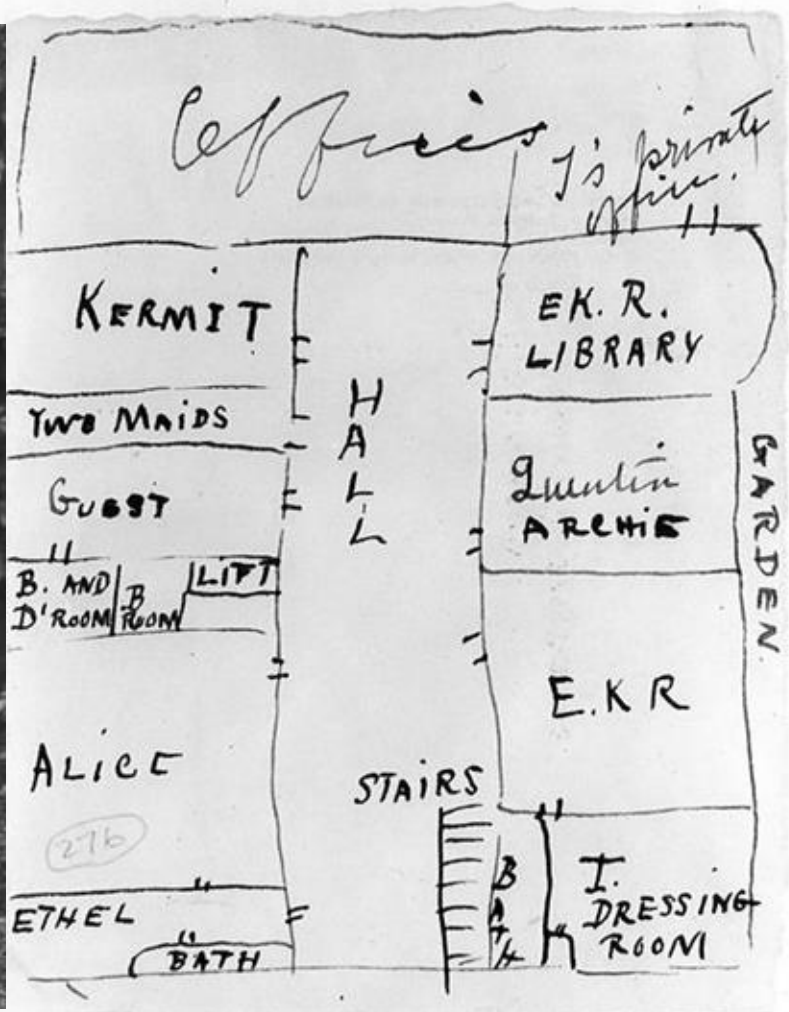 Offices
T's private
office.
KERMIT
EK. R.
LIBRARY
TWO MAIDS
HALL
GUEST
Quentin
ARCHIE
GARDEN.
B. AND
D'ROOM
B
ROOM
LIFT
E.K R
ALICE
STAIRS
276
ETHEL
BATH
BATH
T.
DRESSING
ROOM